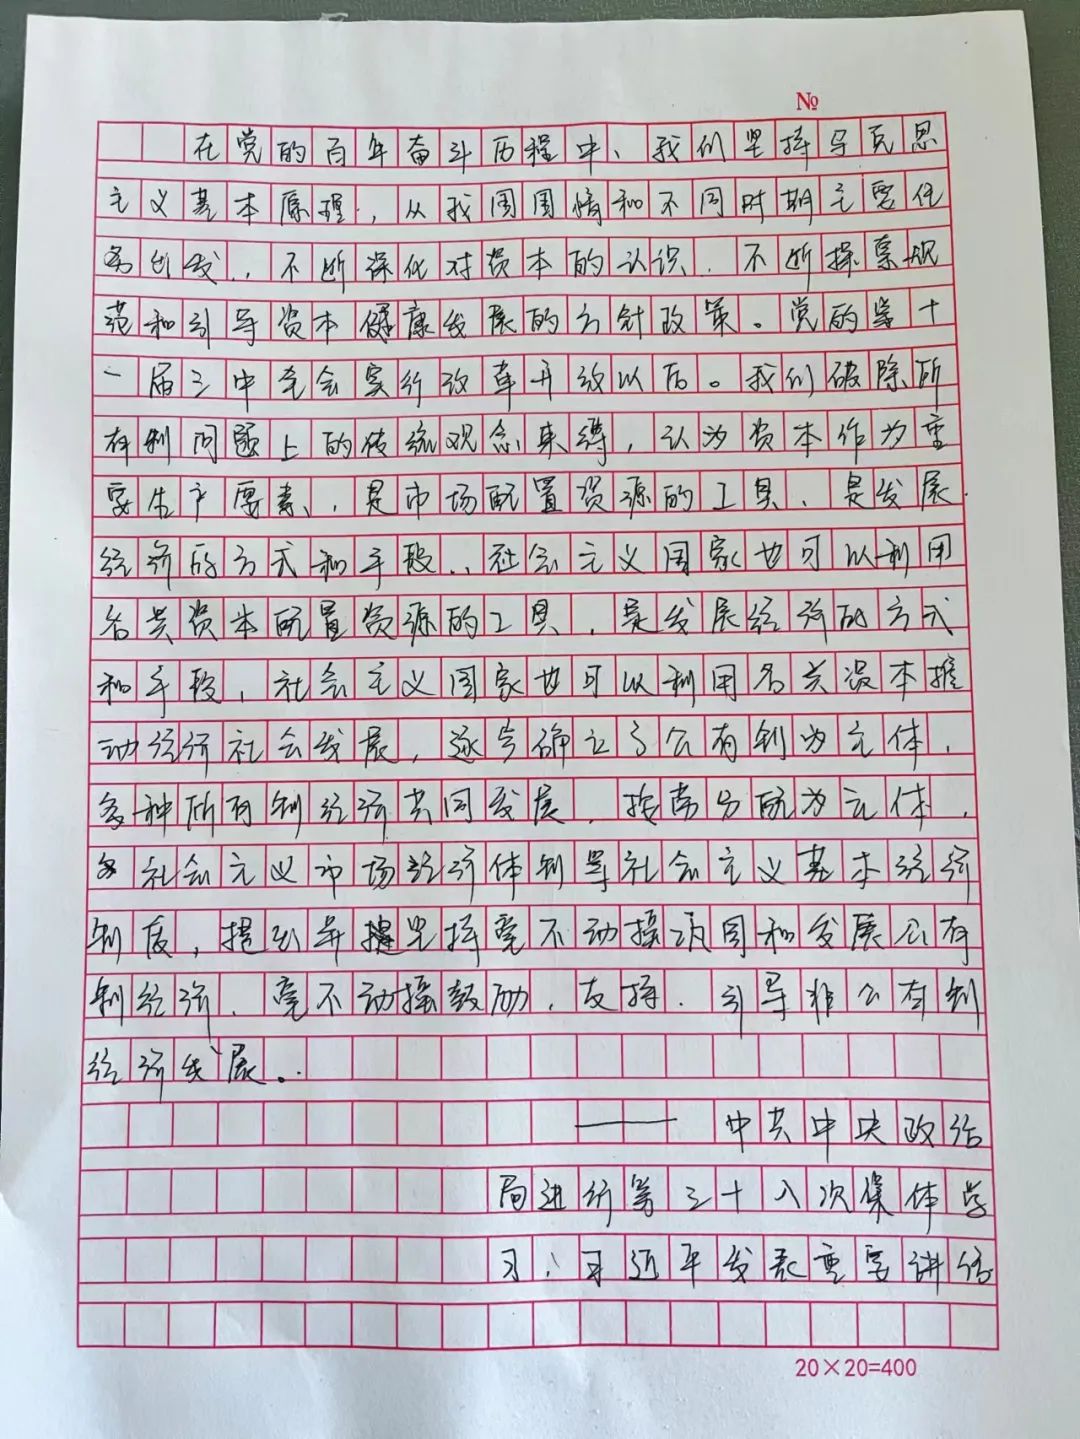 №
在党的百年奋斗历程中、我们坚持马克思
主义基本原理，从我国国情和不同时期主要任
务出发，不断深化对资本的认识，不断探索规
范和引导资本健康发展的方针政策。党的第十
一届三中全会实行改革开放以后。我们破除所
有制问题上的传统观念束缚，认为资本作为重
要生产要素，是市场配置资源的工具、是发展
经济的方式和手段，社会主义国家也可以利用
各类资本配置资源的工具，是发展经济的方式
和手段，社会主义国家也可以利用各类资本推
动经济社会发展，逐步确立了公有制为主体，
多种所有制经济共同发展，按劳分配为主体，
多社会主义市场经济体制等社会主义基本经济
制度，提出并坚持毫不动摇巩固和发展公有
制经济、毫不动摇鼓励，支持、引导非公有制
经济发展。
——中共中央政治
局进行第三十八次集体学
习，习近平发表重要讲话
20×20=400